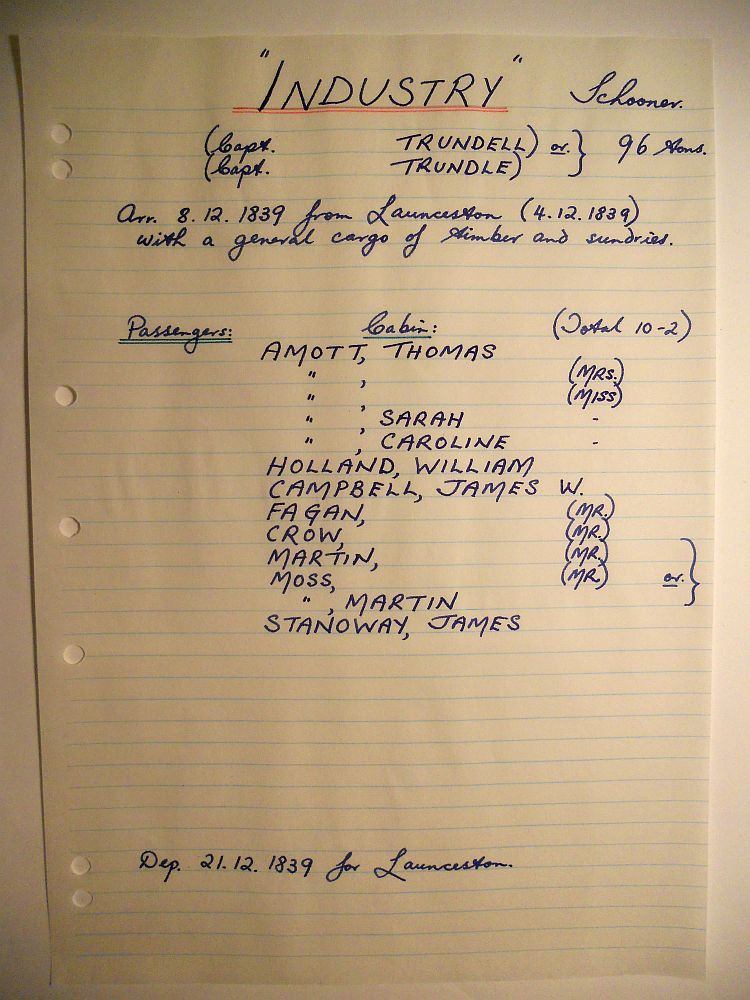 "INDUSTRY" Schooner.
(Capt. TRUNDELL) or. } 96 tons.
(Capt. TRUNDLE)
Arr. 8.12.1839 from Launceston (4.12.1839)
with a general cargo of timber and sundries.
Passengers: Cabin: (Total 10-2)
AMOTT, THOMAS
" , (MRS.)
" , (MISS)
" , SARAH -
" , CAROLINE -
HOLLAND, WILLIAM
CAMPBELL, JAMES W.
FAGAN, (MR.)
CROW, (MR.)
MARTIN, (MR.)
MOSS, (MR.) or. }
" , MARTIN
STANOWAY, JAMES
Dep. 21.12.1839 for Launceston.